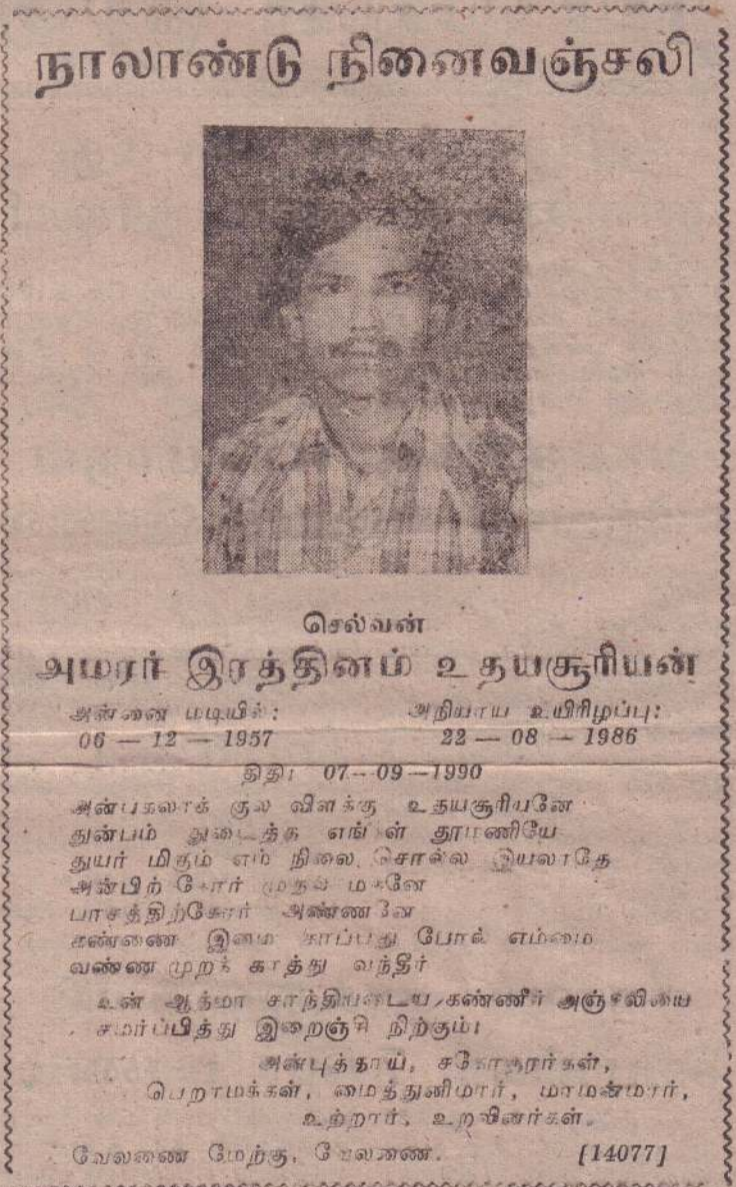 நாலாண்டு நினைவஞ்சலி
செல்வன்
அமரர் இரத்தினம் உதயசூரியன்
அன்னை மடியில்: அநியாய உயிரிழப்பு:
06 — 12 — 1957 22 — 08 — 1986
திதி: 07--09—1990
அன்பகலாக் குல விளக்கு உதயசூரியனே
துன்பம் துடைத்த எங்கள் தூமணியே
துயர் மிகும் எம் நிலை சொல்ல இயலாதே
அன்பிற்கோர் முதல் மகனே
பாசத்திற்கோர் அண்ணனே
கண்ணை இமை காப்பது போல் எம்மை
வண்ணமுறக் காத்து வந்தீர்
உன் ஆத்மா சாந்தியடைய கண்ணீர் அஞ்சலியை
சமர்ப்பித்து இறைஞ்சி நிற்கும்:
அன்புத்தாய், சகோதரர்கள்,
பெறாமக்கள், மைத்துனிமார், மாமன்மார்,
உற்றார், உறவினர்கள்.
வேலணை மேற்கு, வேலணை. [14077]